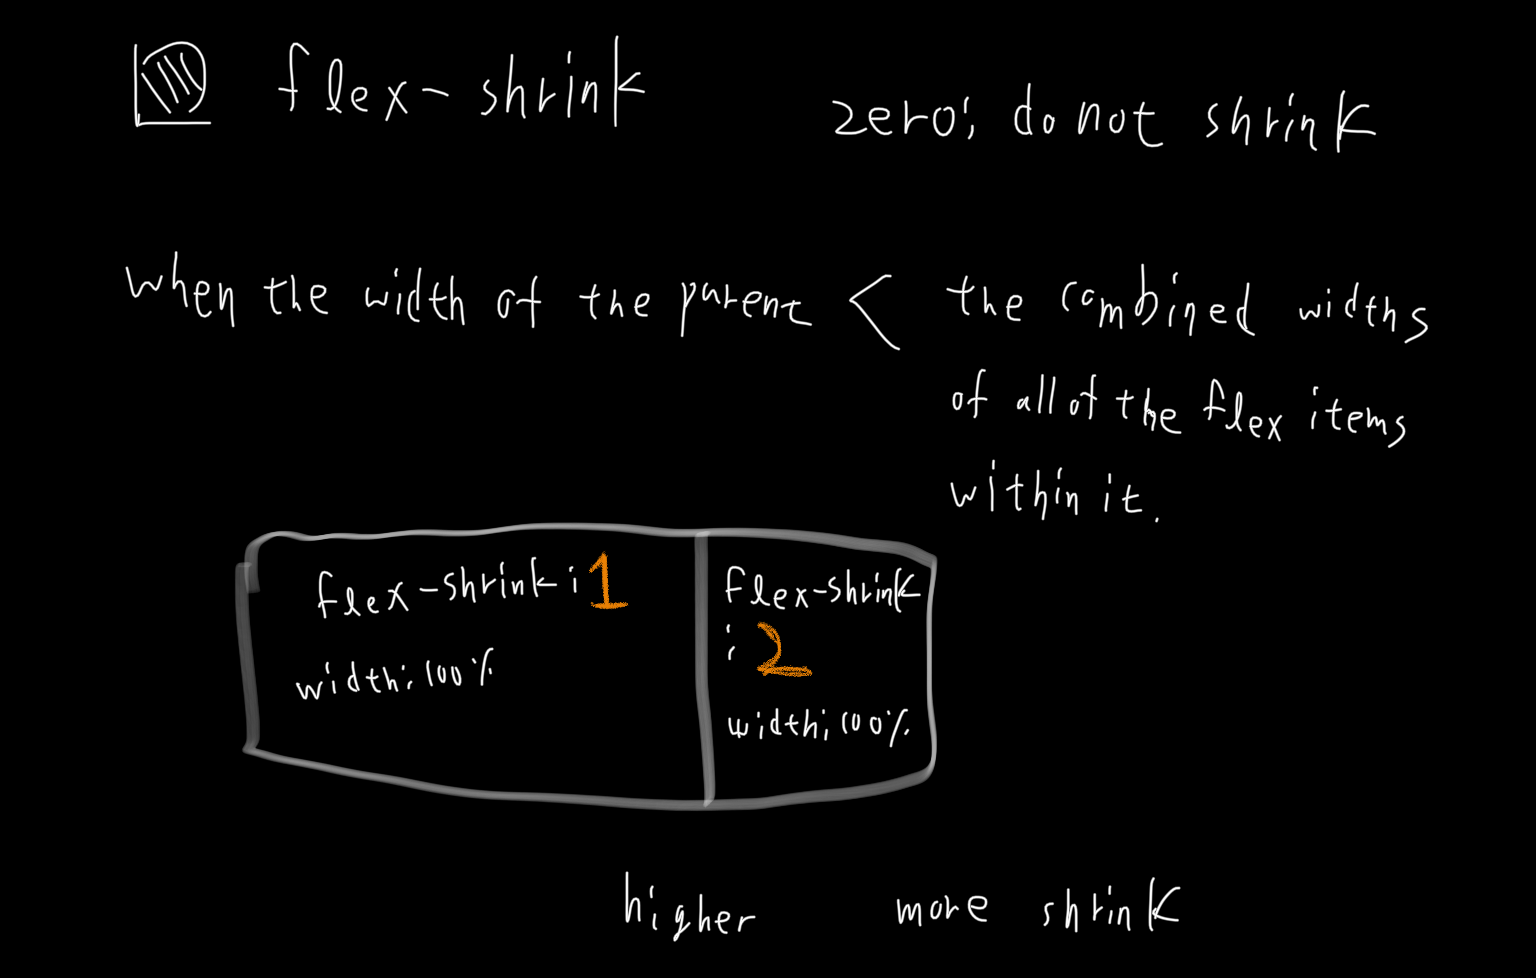 flex-shrink
zero: do not shrink
when the width of the parent < the combined widths
of all of the flex items
within it.
flex-shrink: 1
width: 100%
flex-shrink
: 2
width: 100%
higher more shrink